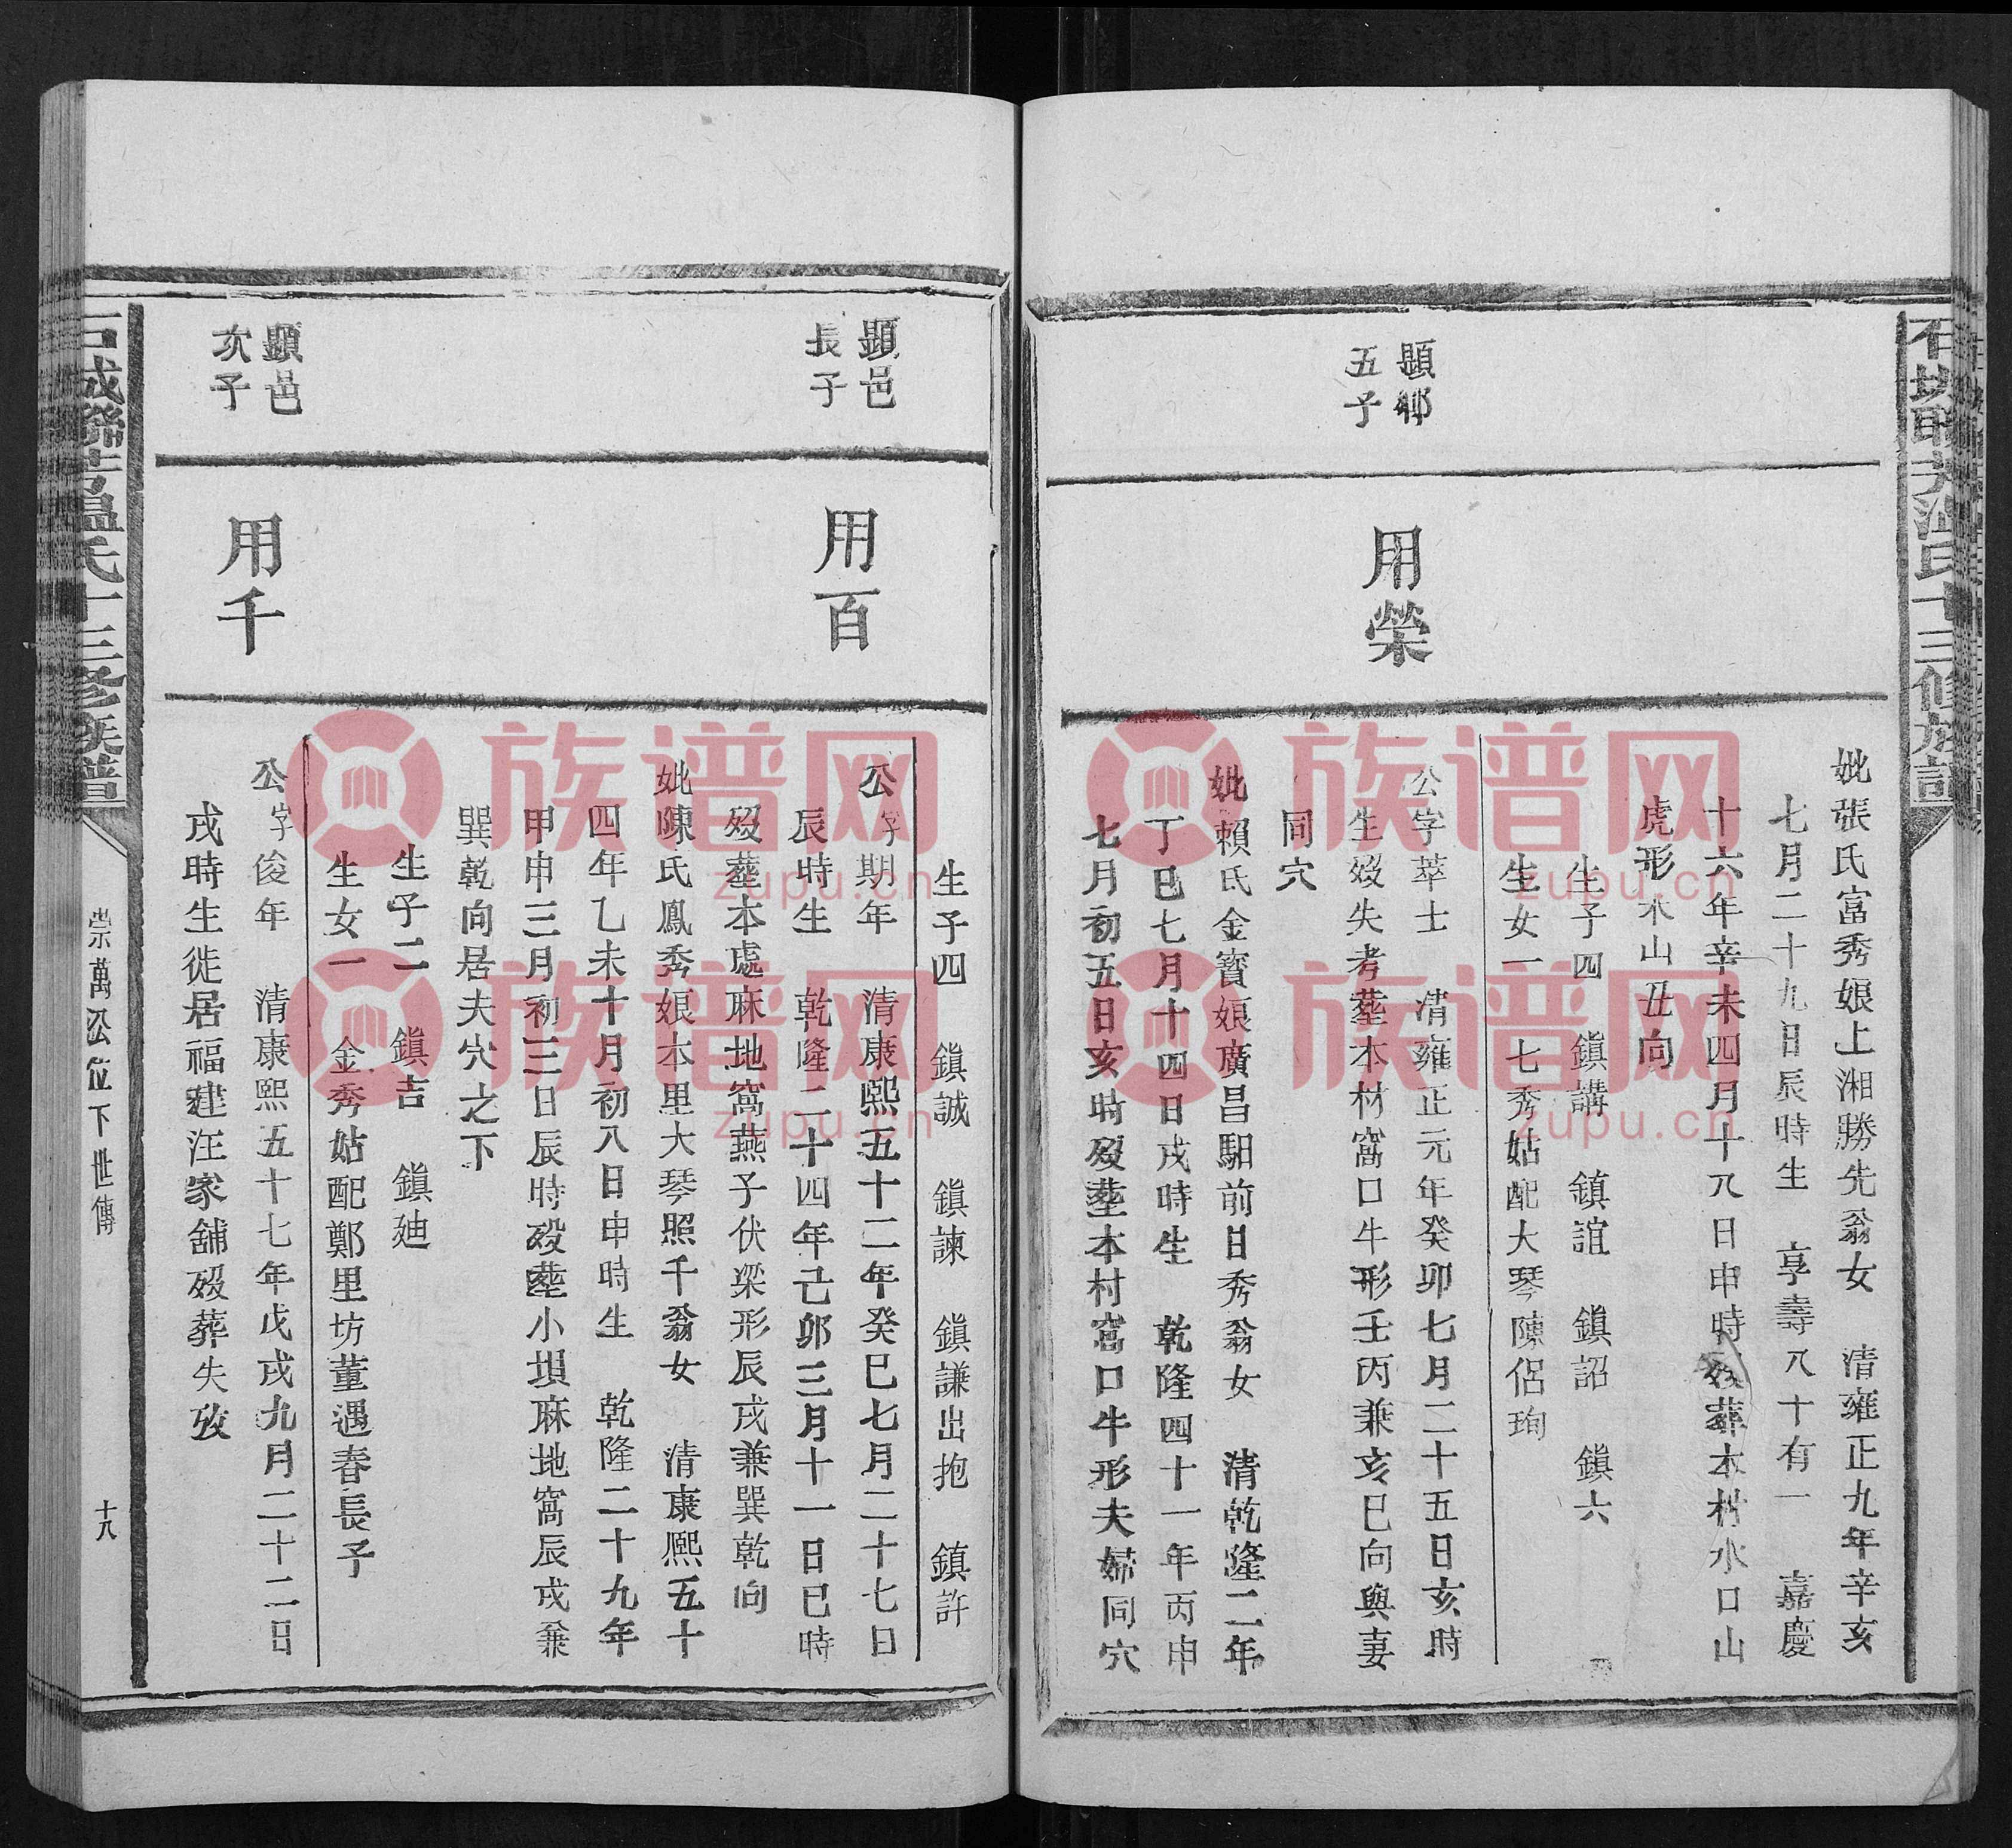 妣張氏富秀娘上湘勝先翁女　清雍正九年辛亥
七月二十九日辰時生　享壽八十有一　嘉慶
十六年辛未四月十八日申時歿葬本村水口山
虎形木山丑向
生子四　鎮講　鎮誼　鎮詔　鎮六
生女一　七秀姑配大琴陳侶珣
顯鄅
五子
用榮
公字萃士　清雍正元年癸卯七月二十五日亥時
生歿失考塟本村窩口牛形壬丙兼亥巳向與妻
同穴
妣賴氏金寳娘廣昌馹前日秀翁女　清乾隆二年
丁巳七月十四日戌時生　乾隆四十一年丙申
七月初五日亥時歿塟本村窩口牛形夫婦同穴
生子四　鎮誠　鎮諫　鎮謙出抱　鎮許
顯邑
長子
用百
公字期年　清康熙五十二年癸巳七月二十七日
辰時生　乾隆二十四年己卯三月十一日巳時
歿塟本處麻地窩燕子伏梁形辰戌兼巽乾向
妣陳氏鳳秀娘本里大琴照千翁女　清康熙五十
四年乙未十月初八日申時生　乾隆二十九年
甲申三月初三日辰時歿塟小垻麻地窩辰戌兼
巽乾向居夫穴之下
生子二　鎮吉　鎮廸
生女一　金秀姑配鄭里坊董遇春長子
顯邑
次子
用千
公字俊年　清康熙五十七年戊戌九月二十二日
戌時生徙居福建汪家舖歿葬失攷
石城聯芳溫氏十三修族譜
崇萬公位下世傳
十八
族谱网
zupu.cn
族谱网
zupu.cn
族谱网
zupu.cn
族谱网
zupu.cn